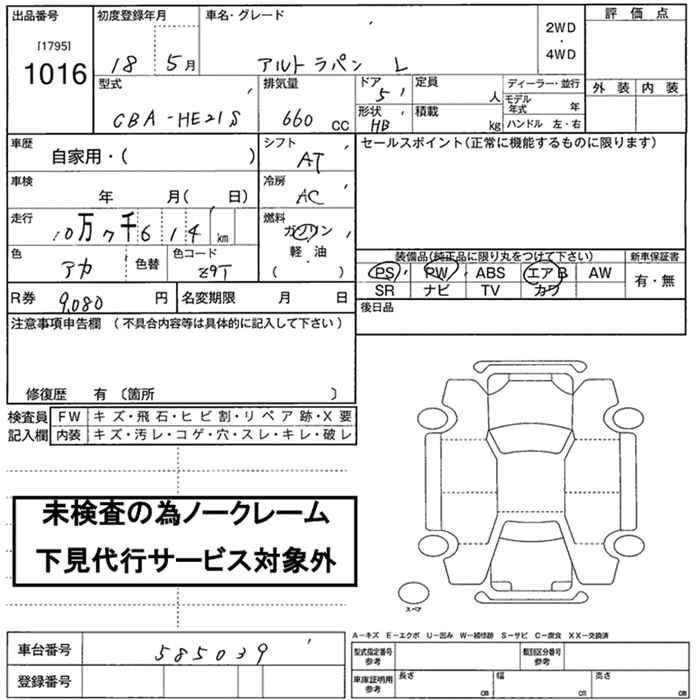 出品番号
[1795]
1016
初度登録年月
18 5月
車名・グレード
アルトラパン L
2WD
・
4WD
評価点
外装 内装
型式
CBA-HE21S
排気量
660 CC
ドア
5
形状
HB
定員
人
積載
kg
ディーラー・並行
モデル年式 年
ハンドル 左・右
車歴
自家用・( )
シフト
AT
車検
年 月( 日)
冷房
AC
走行
10万7千614km
燃料
ガソリン
軽・油
( )
色
アカ
色替
色コード
Z9T
R券 9,080 円
名変期限 月 日
セールスポイント(正常に機能するものに限ります)
装備品(純正品に限り丸をつけて下さい)
PS PW ABS エアB AW
SR ナビ TV カワ
新車保証書
有・無
後日品
注意事項申告欄 (不具合内容等は具体的に記入して下さい)
修復歴 有 〔箇所 〕
検査員
記入欄
FW キズ・飛石・ヒビ割・リペア跡・X要
内装 キズ・汚レ・コゲ・穴・スレ・キレ・破レ
未検査の為ノークレーム
下見代行サービス対象外
スペア
A−キズ E−エクボ U−凹み W−補修跡 S−サビ C−腐食 XX−交換済
車台番号 585039
登録番号
型式指定番号
参考
類別区分番号
参考
車庫証明用
参考
長さ cm
幅 cm
高さ cm